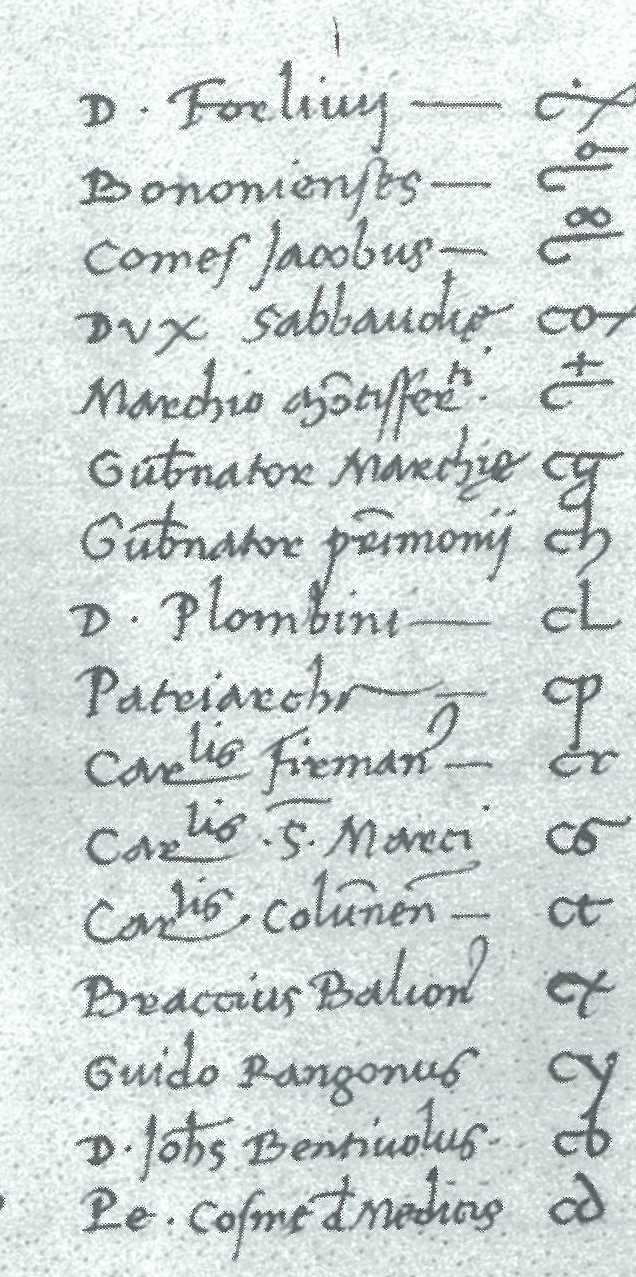 D. Forlivij — c
Bononienses — c
Comes Jacobus — c
Dux Sabbaudie co
Marchio Mōtisferr. c
Gubnator Marchie cg
Gubnator prīmonij ch
D. Plombini — cl
Patriarch — cp
Carlis Firman — cr
Carlis .S. Marci cs
Carlis. Colūnen — ct
Braccius Balion cx
Guido Rangonus cy
D. Johs Bentiuolus. cb
Pe. Cosme d Medicis cd